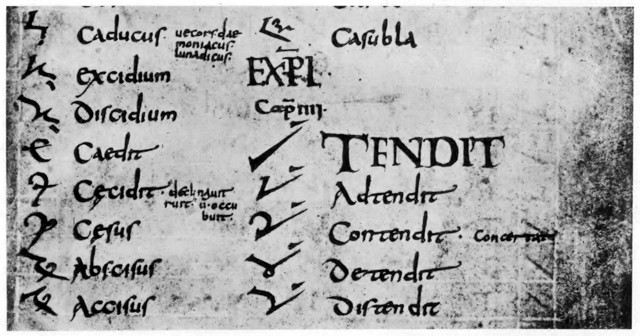 Caducus. uecors. dae
moniacus.
lunadicus.
excidium
Discidium
Caedit
Cęcidit. declinauit
ruit. ū. occu
buit.
Cęsus
Abscisus
Accisus
Casubla
EXPL
Cap̄ IIII.
TENDIT
Adtendit
Contendit. Concertat
Detendit
Distendit